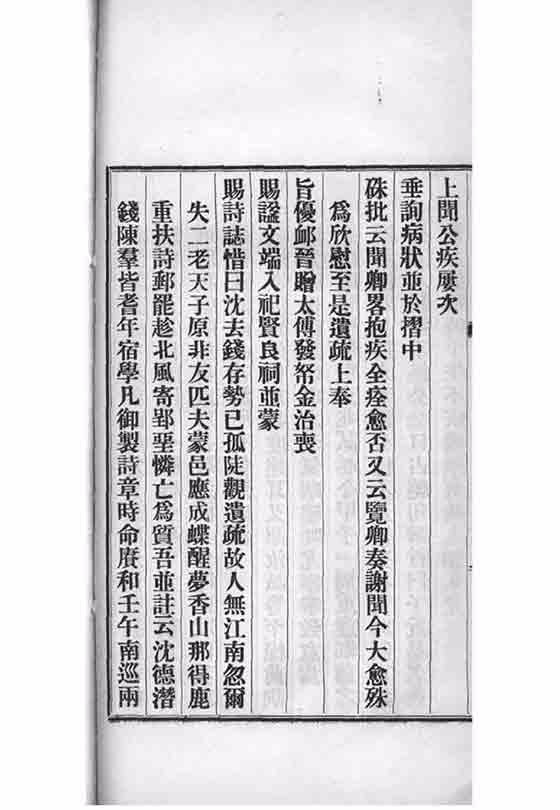 上聞公疾屢次
垂詢病狀並於摺中
硃批云聞卿畧抱疾全痊愈否又云覽卿奏謝聞今大愈殊
爲欣慰至是遺疏上奉
旨優䘏晉贈太傅發帑金治喪
賜諡文端入祀賢良祠並蒙
賜詩誌惜曰沈去錢存勢已孤陡觀遺疏故人無江南忽爾
失二老天子原非友匹夫蒙邑應成蝶醒夢香山那得鹿
重扶詩郵罷趁北風寄郢堊憐亡爲質吾並註云沈德潛
錢陳羣皆耆年宿學凡御製詩章時命賡和壬午南巡兩